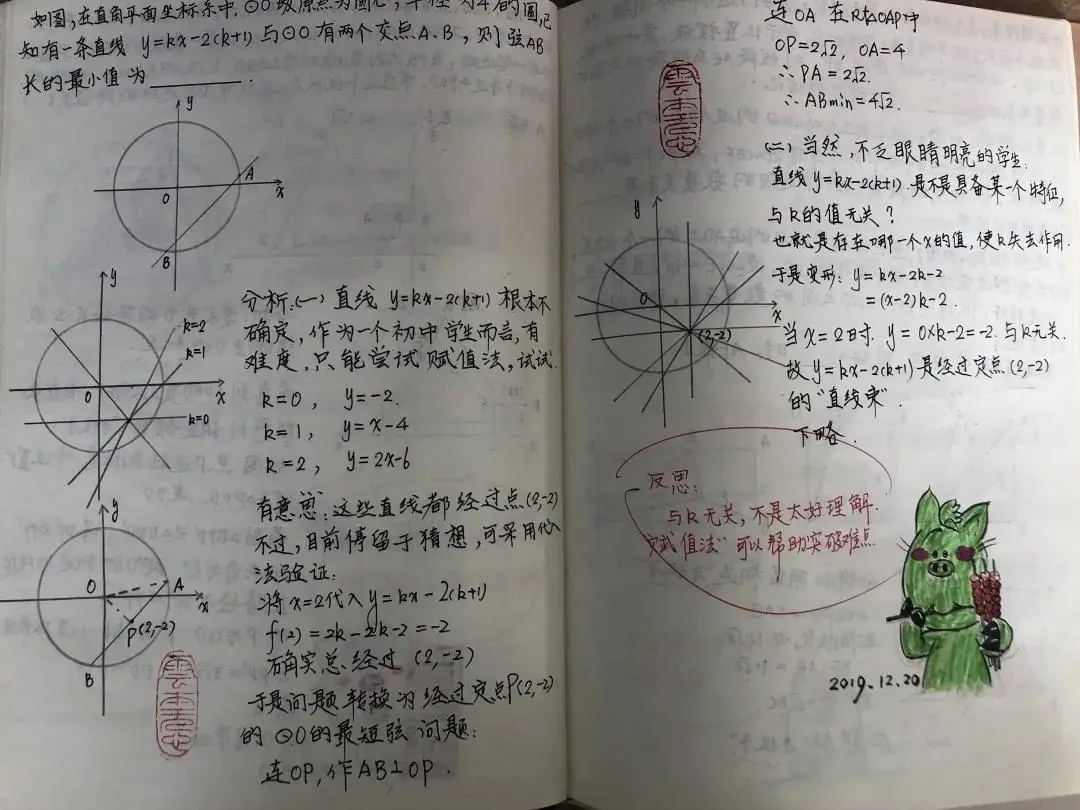 如图,在直角平面坐标系中,⊙O以原点为圆心,半径为4的圆,已
知有一条直线 y=kx-2(k+1)与⊙O有两个交点A、B,则弦AB
长的最小值为______.
y
A
O
x
B
y
k=2
k=1
O
x
k=0
分析:(一)直线 y=kx-2(k+1) 根本不
确定,作为一个初中学生而言,有
难度,只能尝试赋值法,试试.
k=0, y=-2.
k=1, y=x-4
k=2, y=2x-6
有意思:这些直线都经过点(2,-2)
不过,目前停留于猜想,可采用代入
法验证:
将x=2代入y=kx-2(k+1)
f(2)=2k-2k-2=-2
确实总经过(2,-2)
于是问题转换为经过定点P(2,-2)
的⊙O的最短弦问题:
连OP,作AB⊥OP.
y
O
A
x
P(2,-2)
B
连OA 在Rt△OAP中
OP=2√2, OA=4
∴PA=2√2.
∴ABmin=4√2.
(二)当然,不乏眼睛明亮的学生.
直线y=kx-2(k+1).是不是具备某一个特征,
与k的值无关?
也就是存在哪一个x的值,使k失去作用.
于是变形:y=kx-2k-2
=(x-2)k-2.
当x=2时.y=0×k-2=-2.与k无关.
故y=kx-2(k+1)是经过定点(2,-2)
的“直线束”.
下略.
y
O
x
(2,-2)
反思:
与k无关,不是太好理解.
“赋值法”可以帮助突破难点
2019.12.20